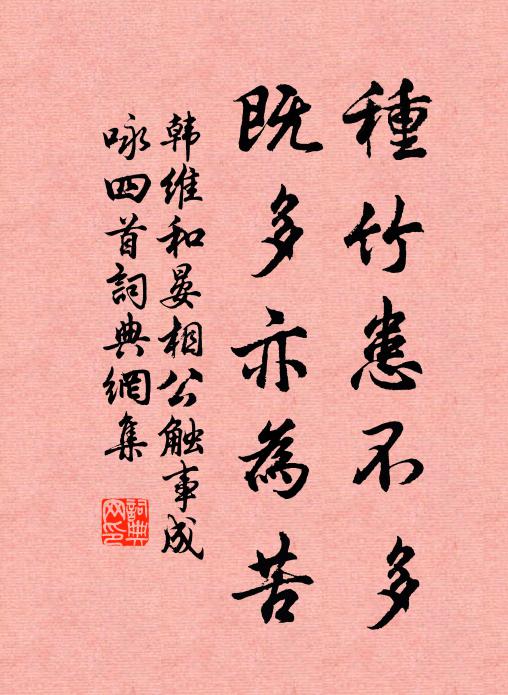 種竹患不多
既多亦為苦
韩维和晏相公触事成
咏四首詞典網集
詞典
网印